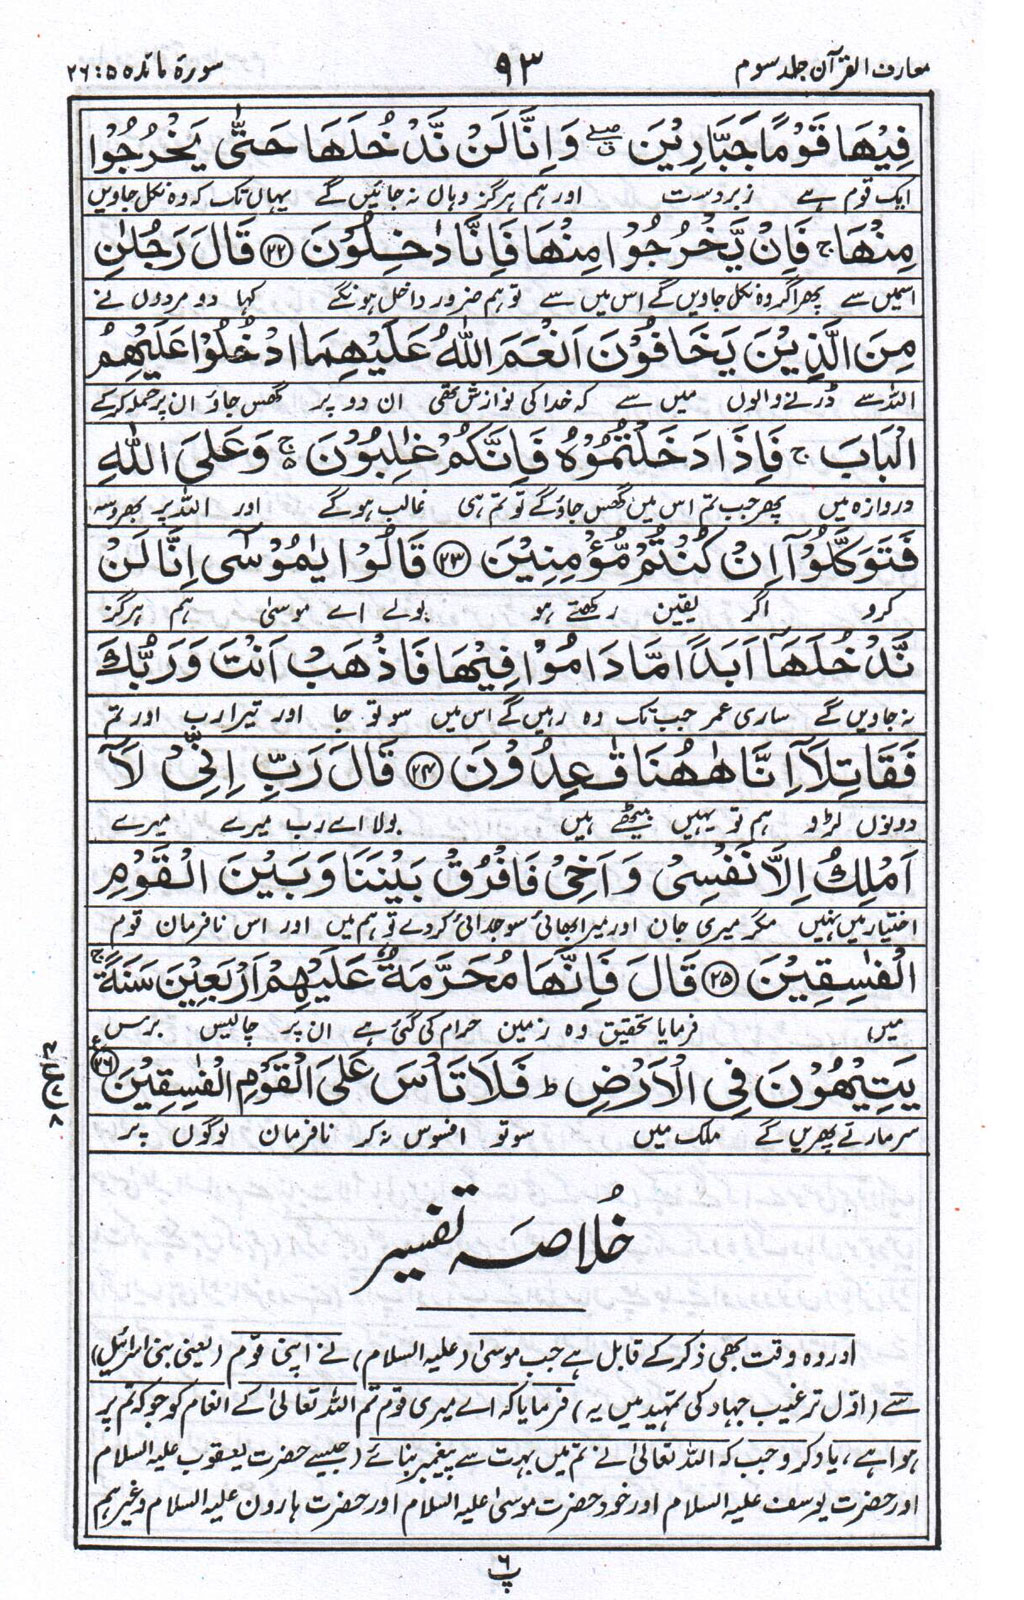 معارف القرآن جلد سوم
۹۳
سورۃ مائدہ ۵ : ۲۶
فِيْهَا قَوْمًا جَبَّارِيْنَ وَاِنَّا لَنْ نَّدْخُلَهَا حَتّٰى يَخْرُجُوْا
ایک قوم ہے زبردست اور ہم ہرگز وہاں نہ جائیں گے یہاں تک کہ وہ نکل جاویں
مِنْهَا ج فَاِنْ يَّخْرُجُوْا مِنْهَا فَاِنَّا دٰخِلُوْنَ ﴿۲۲﴾ قَالَ رَجُلٰنِ
اسمیں سے پھر اگر وہ نکل جاویں گے اس میں سے تو ہم ضرور داخل ہونگے کہا دو مردوں نے
مِنَ الَّذِيْنَ يَخَافُوْنَ اَنْعَمَ اللّٰهُ عَلَيْهِمَا ادْخُلُوْا عَلَيْهِمُ
اللہ سے ڈرنے والوں میں سے کہ خدا کی نوازش تھی ان دو پر گھس جاؤ ان پر حملہ کرکے
الْبَابَ ج فَاِذَا دَخَلْتُمُوْهُ فَاِنَّكُمْ غٰلِبُوْنَ ج وَعَلَى اللّٰهِ
دروازہ میں پھر جب تم اس میں گھس جاؤ گے تو تم ہی غالب ہوگے اور اللہ پر بھروسہ
فَتَوَكَّلُوْٓا اِنْ كُنْتُمْ مُّؤْمِنِيْنَ ﴿۲۳﴾ قَالُوْا يٰمُوْسٰٓى اِنَّا لَنْ
کرو اگر یقین رکھتے ہو بولے اے موسیٰ ہم ہرگز
نَّدْخُلَهَآ اَبَدًا مَّا دَامُوْا فِيْهَا فَاذْهَبْ اَنْتَ وَرَبُّكَ
نہ جاویں گے ساری عمر جب تک وہ رہیں گے اس میں سو تو جا اور تیرا رب اور تم
فَقَاتِلَآ اِنَّا هٰهُنَا قٰعِدُوْنَ ﴿۲۴﴾ قَالَ رَبِّ اِنِّيْ لَآ
دونوں لڑو ہم تو یہیں بیٹھے ہیں بولا اے رب میرے میرے
اَمْلِكُ اِلَّا نَفْسِيْ وَاَخِيْ فَافْرُقْ بَيْنَنَا وَبَيْنَ الْقَوْمِ
اختیار میں نہیں مگر میری جان اور میرا بھائی سو جدائی کردے تو ہم میں اور اس نافرمان قوم
الْفٰسِقِيْنَ ﴿۲۵﴾ قَالَ فَاِنَّهَا مُحَرَّمَةٌ عَلَيْهِمْ اَرْبَعِيْنَ سَنَةً ج
میں فرمایا تحقیق وہ زمین حرام کی گئی ہے ان پر چالیس برس
يَتِيْهُوْنَ فِي الْاَرْضِ ط فَلَا تَاْسَ عَلَى الْقَوْمِ الْفٰسِقِيْنَ ﴿۲۶﴾
سرمارتے پھریں گے ملک میں سو تو افسوس نہ کر نافرمان لوگوں پر
خُلاصہ تفسیر
اور وہ وقت بھی ذکر کے قابل ہے جب موسیٰ (علیہ السلام) نے اپنی قوم (یعنی بنی اسرائیل)
سے (اوّل ترغیب جہاد کی تمہید میں یہ) فرمایا کہ اے میری قوم تم اللہ تعالیٰ کے انعام کو جو کہ تم پر
ہوا ہے، یاد کرو جب کہ اللہ تعالیٰ نے تم میں بہت سے پیغمبر بنائے (جیسے حضرت یعقوب علیہ السلام
اور حضرت یوسف علیہ السلام اور خود حضرت موسیٰ علیہ السلام اور حضرت ہارون علیہ السلام وغیرہم
پ ۶